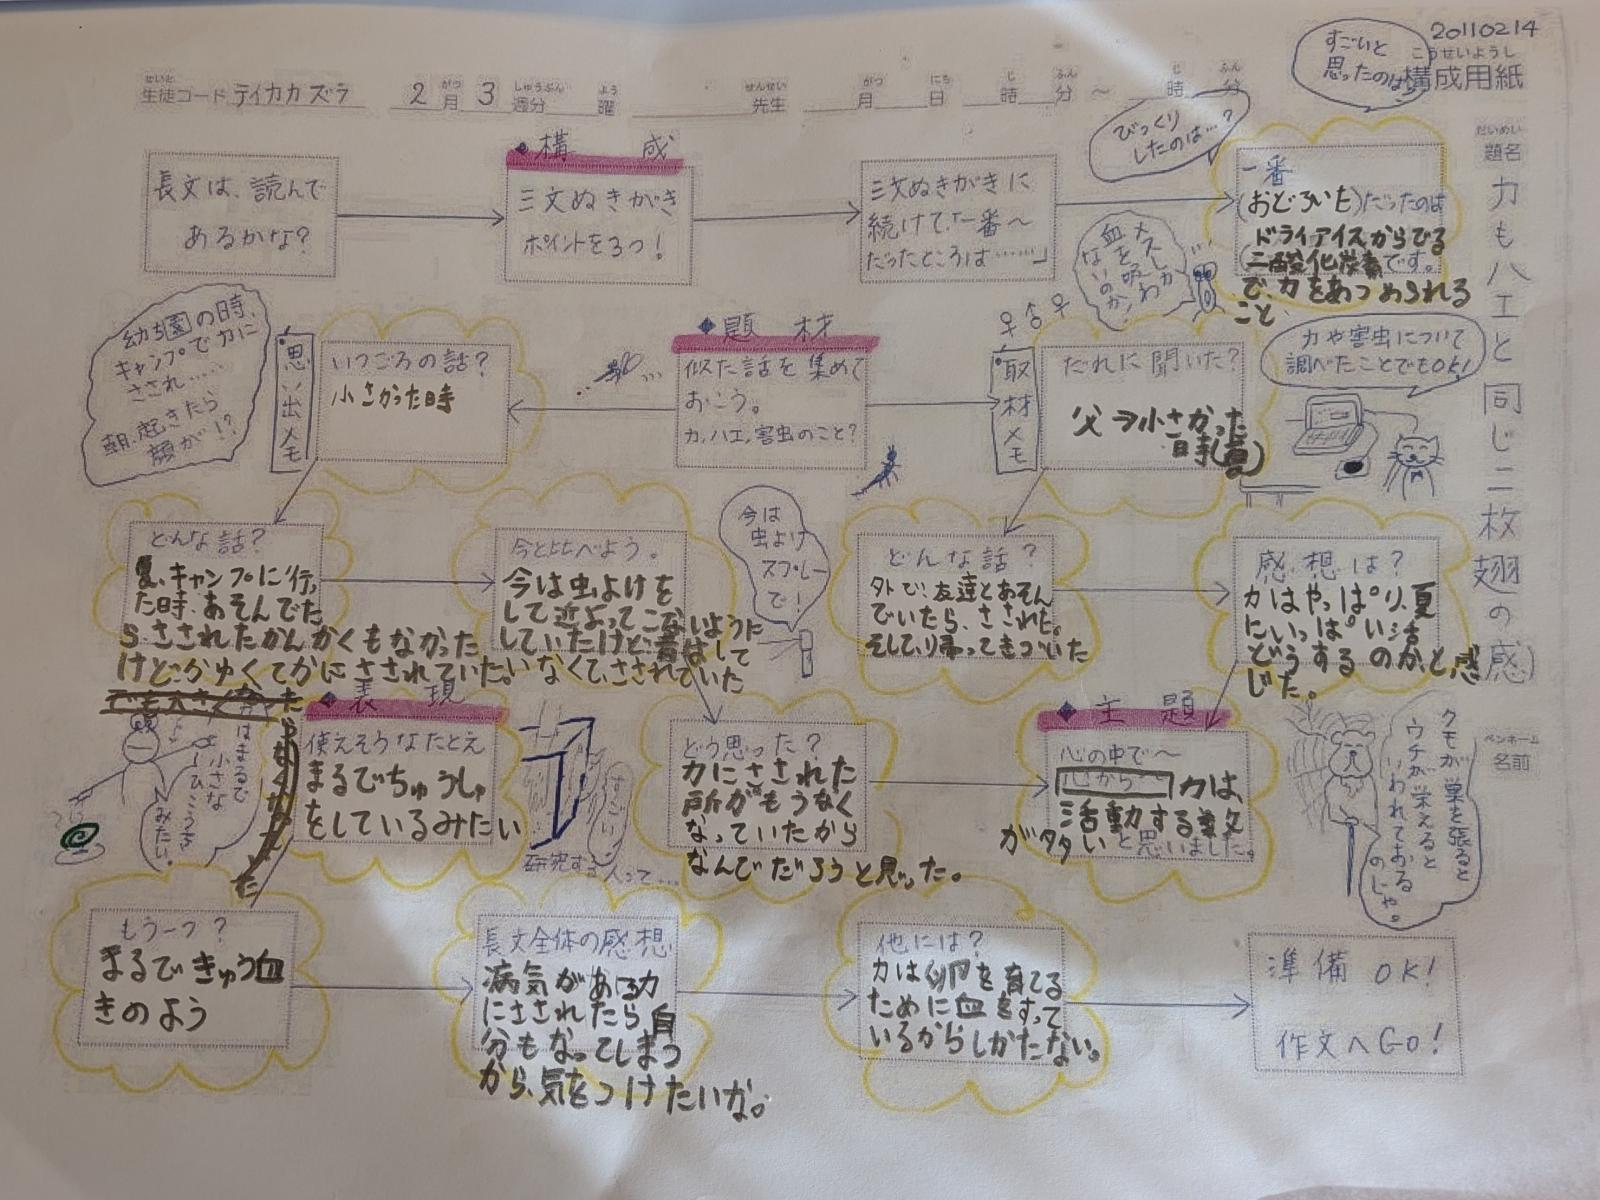 20110214
こうせいようし
構成用紙
せいと
生徒コード テイカカズラ 2月 3週分 曜 先生 月 日 時 分 ～ 時 分
がつ しゅうぶん よう せんせい がつ にち じ ふん じ ふん
だいめい
題名
力もハエと同じ二枚翅の感)
ペンネーム
名前
長文は、読んで
あるかな?
◆構 成
三文ぬきがき
ポイントを3つ!
三文ぬきがきに
続けて、「一番～
だったところは……」
びっくり
したのは…?
すごいと
思ったのは
一番
(おどろいた)だったのは
ドライアイスからでる
二酸化炭素です。
で、カをあつめられる
こと
メスしか
血を吸わ
ないのか!
♀♂♀
幼ち園の時、
キャンプでカに
さされ……
朝、起きたら
顔が!?
思い出メモ
いつごろの話?
小さかった時
◆題 材
似た話を集めて
おこう。
カ、ハエ、害虫のこと?
取材メモ
だれに聞いた?
父→小さかった
時(夏)
カや害虫について
調べたことでもOK!
どんな話?
夏、キャンプに行っ
た時、あそんでた
ら、さされたかんかくもなかった
けど、かゆくてかにさされていた。
今と比べよう。
今は虫よけを
して近よってこないように
していたけど、昔はして
いなくて、さされていた
今は
虫よけ
スプレー
で!
どんな話?
外で、友達とあそん
でいたら、さされた。
そして、帰ってきづいた
感想は?
カはやっぱり、夏
にいっぱい活
どうするのか、と感
じた。
はまるで
小さな
ひこうき
みたい。
◆表 現
使えそうなたとえ
まるでちゅうしゃ
をしているみたい
すごい!
研究する人って…
どう思った?
カにさされた
所がもうなく
なっていたから
なんでだろうと思った。
◆主 題
心の中で～
心から
カは、
活動する数
が多いと思いました。
クモが巣を張ると
ウチが栄えると
いわれておる
のじゃ。
もう一つ?
まるできゅう血
きのよう
長文全体の感想
病気があるカ
にさされたら、自
分もなってしまう
から、気をつけたいな。
他には?
カは卵を育てる
ために血をすって
いるからしかたない。
準備 OK!
作文へGO!